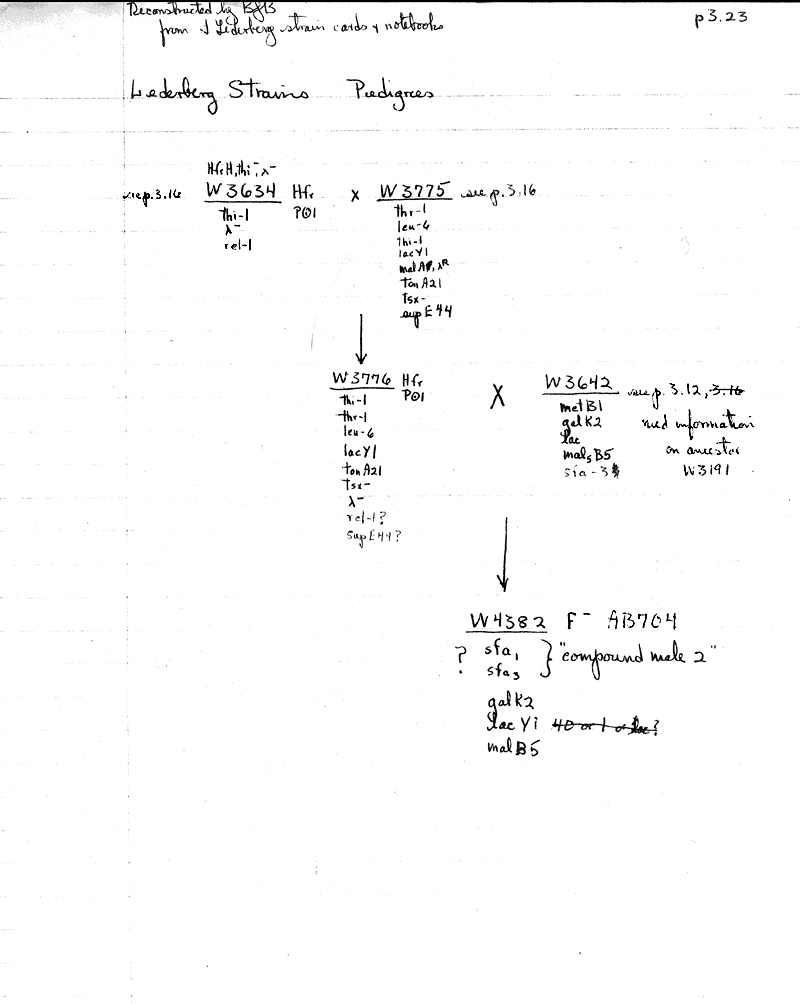 Reconstructed by BJB
from J Lederberg strain cards & notebooks
p3.23
Lederberg Strains Pedigrees
HfrH, thi⁻, λ⁻
see p.3.16 W3634 Hfr x W3775 see p.3.16
PO1
thi-1
λ⁻
rel-1
thr-1
leu-6
thi-1
lacY1
malA, λᴿ
tonA21
tsx-
supE44
W3776 Hfr
PO1
thi-1
thr-1
leu-6
lacY1
tonA21
tsx-
λ⁻
rel-1?
supE44?
X
W3642 see p. 3.12, 3.16
metB1
galK2
lac
malB5
sfa-3
need information
on ancestor
W3191
W4382 F⁻ AB704
? sfa₁ } "compound male 2"
sfa₃
galK2
lacY1 40 or 1 or lac?
malB5